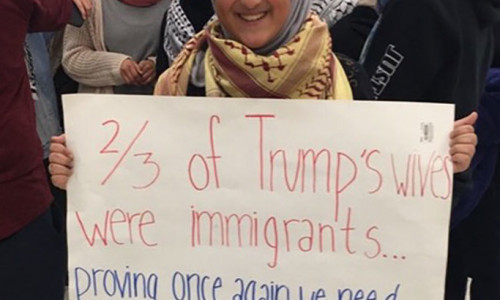 2/3 of Trump's wives
were immigrants...
proving once again we need